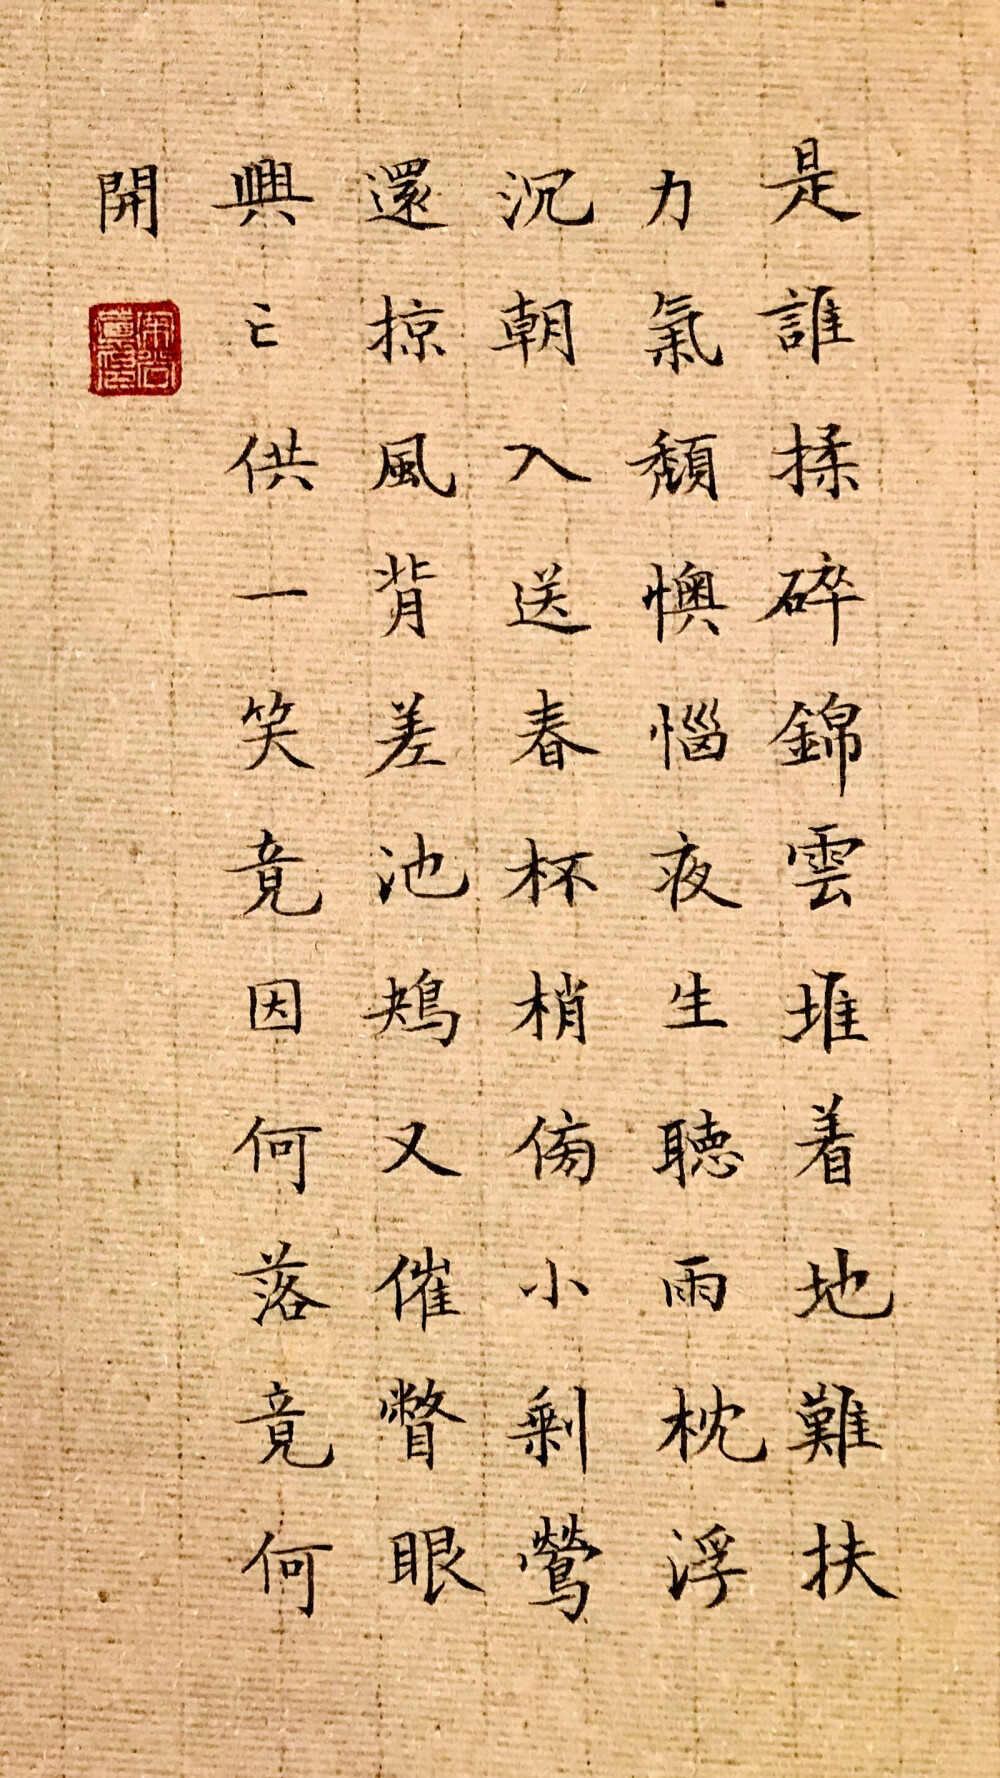 是誰揉碎錦雲堆着地難扶
力氣頹懊惱夜生聽雨枕浮
沉朝入送春杯梢傍小剩鶯
還掠風背差池鴂又催瞥眼
興亡供一笑竟因何落竟何
開